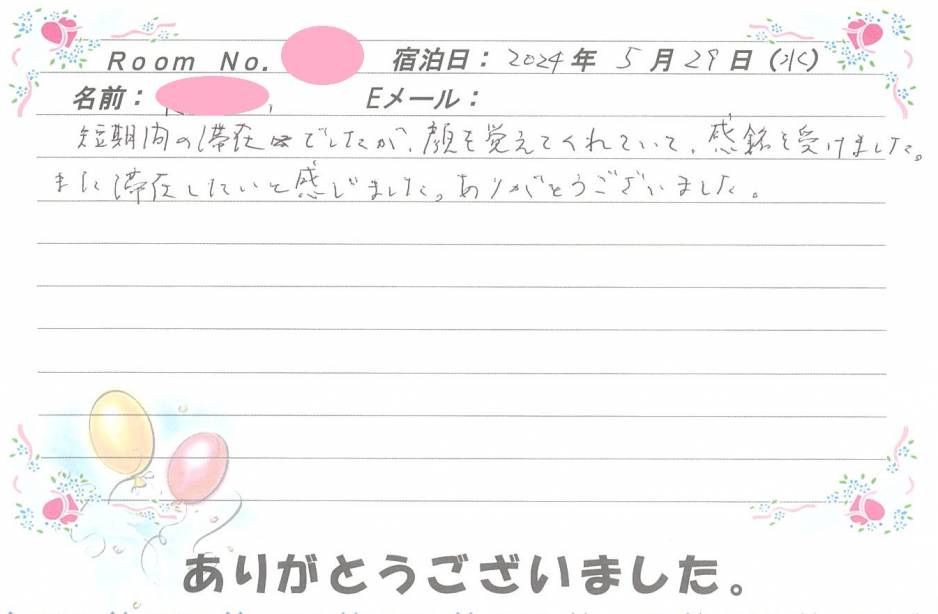 Room No. 宿泊日： 2024年 5月29日（水）
名前： Eメール：
短期間の滞在でしたが、顔を覚えてくれていて、感銘を受けました。
また滞在したいと感じました。ありがとうございました。
ありがとうございました。